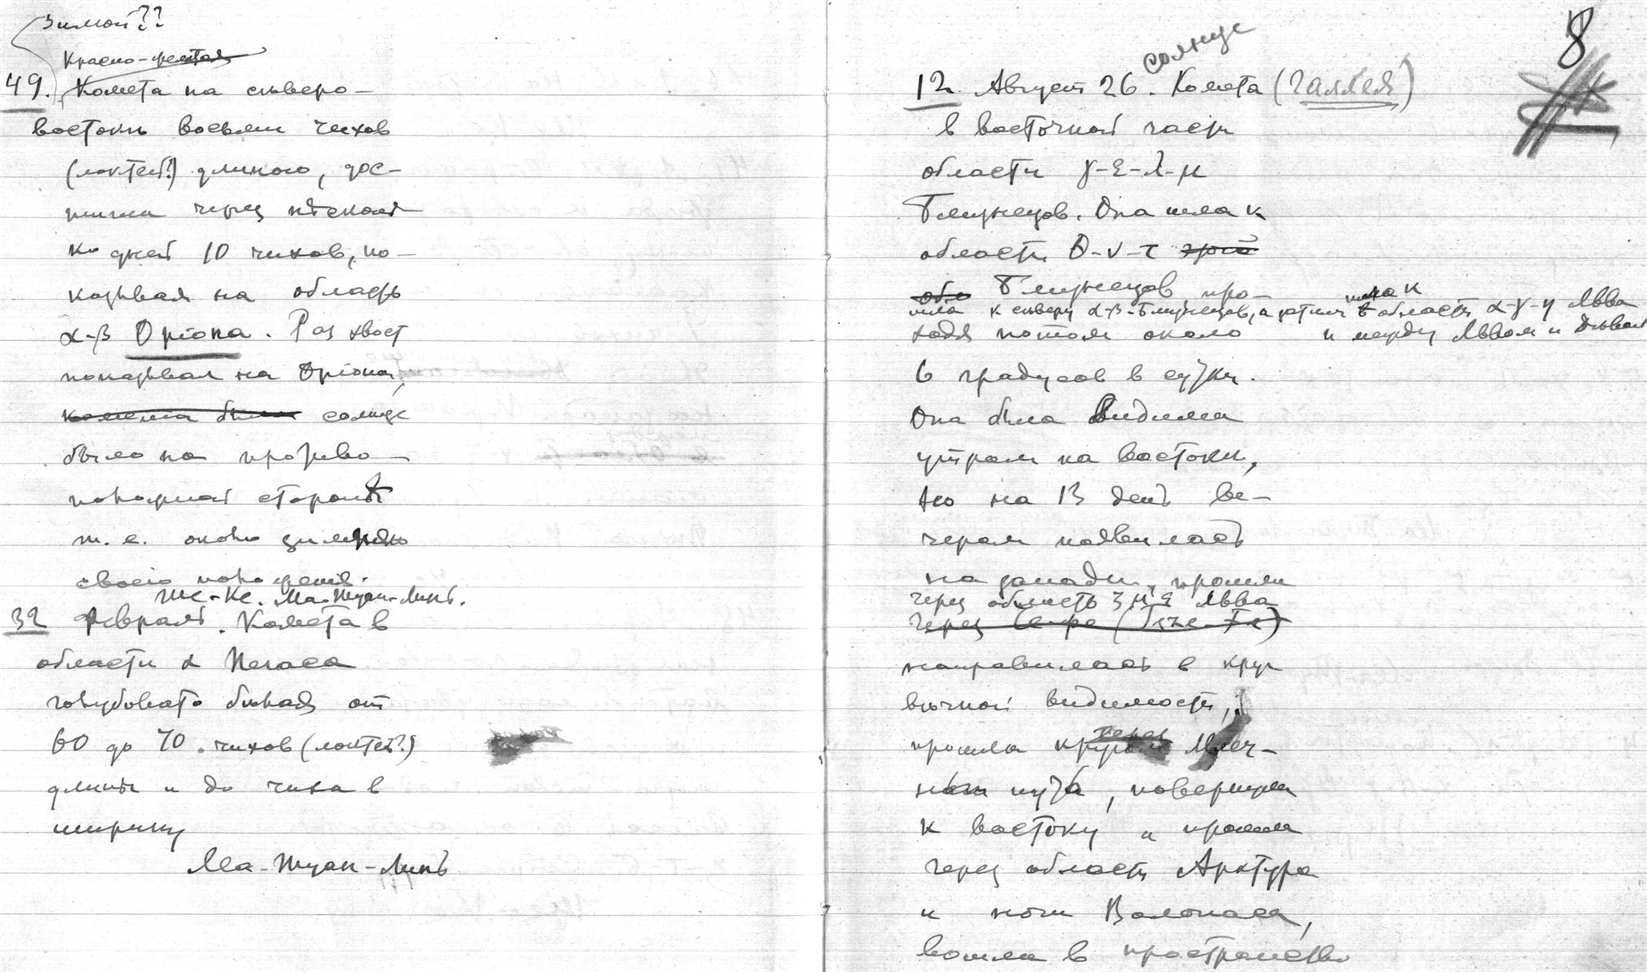 Зимой??
Красно-желтая
49. Комета на сѣверо-
востокѣ восьми чихов
(локтей?) длиною, дос-
тигла через нѣсколь-
ко дней 10 чихов, по-
казывая на область
α-β Ориона. Раз хвост
показывал на Ориона,
комета была солнце
было на противо-
положной сторонѣ
т. е. около зимняго
своего положения.
Ше-Ке. Ма-Туан-Линь.
32 Февраль. Комета в
области α Пегаса
голубовато бѣлая от
60 до 70 чихов (локтей?)
длины и до чиха в
ширину
Ма-Туан-Линь
8
солнце
12. Август 26. Комета (Галлея)
в восточной части
области γ-ε-λ-μ
Близнецов. Она шла к
области θ-ν-τ
обл Близнецов про-
шла к сѣверу α-β-Близнецов, а затѣм шла к в область α-γ-η Льва
ходя потом около и между Львом и Дѣвой
6 градусов в сутки.
Она была видима
утром на востокѣ,
но на 13 день ве-
чером появилась
на западѣ, прошла
через область Льва
через
направилась в круг
вѣчной видимости,
прошла через Млеч-
ный путь, повернула
к востоку и прошла
через область Арктура
и ноги Волопаса,
вошла в пространство